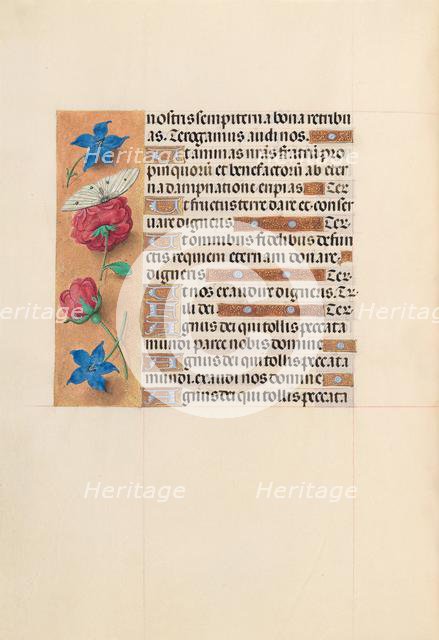 nostris sempiterna bona retribu
as. Te rogamus audi nos.
Ut animas nr̃as fratrũ pro
pinquorũ et benefactorũ ab eter
na dampnatione eripias Te r.
Ut fructus terre dare et conser
uare digneris. Te r.
Ut omnibus fidelibus defun
ctis requiem eternam donare
digneris Te r.
Ut nos exaudire digneris. Te r.
Fili dei Te r.
Agnus dei qui tollis peccata
mundi parce nobis domine
Agnus dei qui tollis peccata
mundi. exaudi nos domine
Agnus dei qui tollis peccata
Heritage Heritage
Heritage Heritage
Heritage Heritage